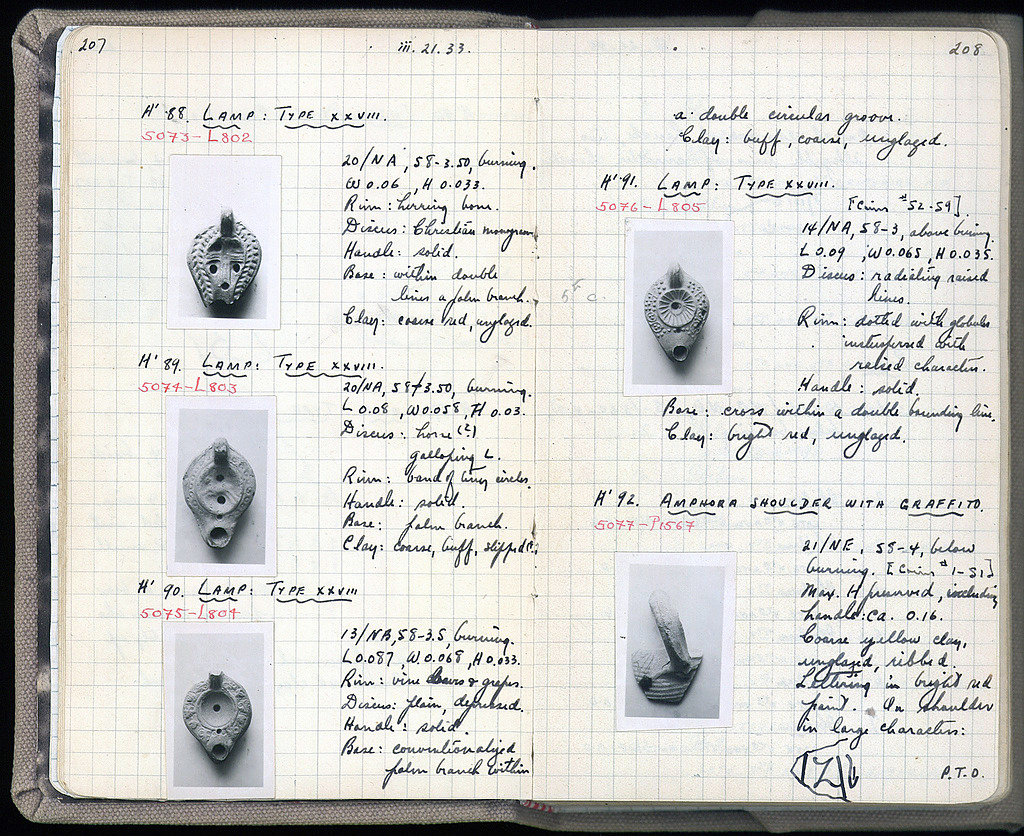 207
iii. 21. 33.
H' 88. LAMP: TYPE XXVIII.
5073-L802
20/NA, 58-3.50, burning.
W 0.06, H 0.033.
Rim: herring bone.
Discus: Christian monogram
Handle: solid.
Base: within double
lines a palm branch.
Clay: coarse red, unglazed.
H' 89. LAMP: TYPE XXVIII.
5074-L803
20/NA, 58-3.50, burning.
L 0.08, W 0.058, H 0.03.
Discus: horse (?)
galloping L.
Rim: band of tiny circles.
Handle: solid.
Base: palm branch.
Clay: coarse, buff, slipped
H' 90. LAMP: TYPE XXVIII
5075-L804
13/NB, 58-3.5, burning.
L 0.087, W. 0.068, H 0.033.
Rim: vine leaves & grapes.
Discus: plain, depressed.
Handle: solid.
Base: conventionalized
palm branch within
208
a double circular groove.
Clay: buff, coarse, unglazed.
H' 91. LAMP: TYPE XXVIII.
5076-L805
[Coins #52-59].
14/NA, 58-3, above burning.
L 0.09, W 0.065, H 0.035.
Discus: radiating raised
lines.
5th c.
Rim: dotted with globules
interspersed with
raised characters.
Handle: solid.
Base: cross within a double bounding line.
Clay: bright red, unglazed.
H' 92. AMPHORA SHOULDER WITH GRAFFITO.
5077-P1567
21/NE, 58-4, below
burning. [Coins #1-51]
Max. H preserved, including
handle: ca. 0.16.
Coarse yellow clay,
unglazed, ribbed.
Lettering in bright red
paint. On shoulder
in large characters:
P.T.O.